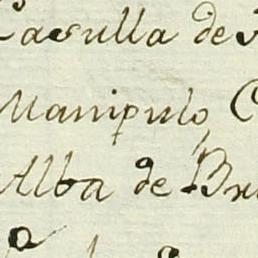 Casulla de
Manipulo, C
Alba de Br